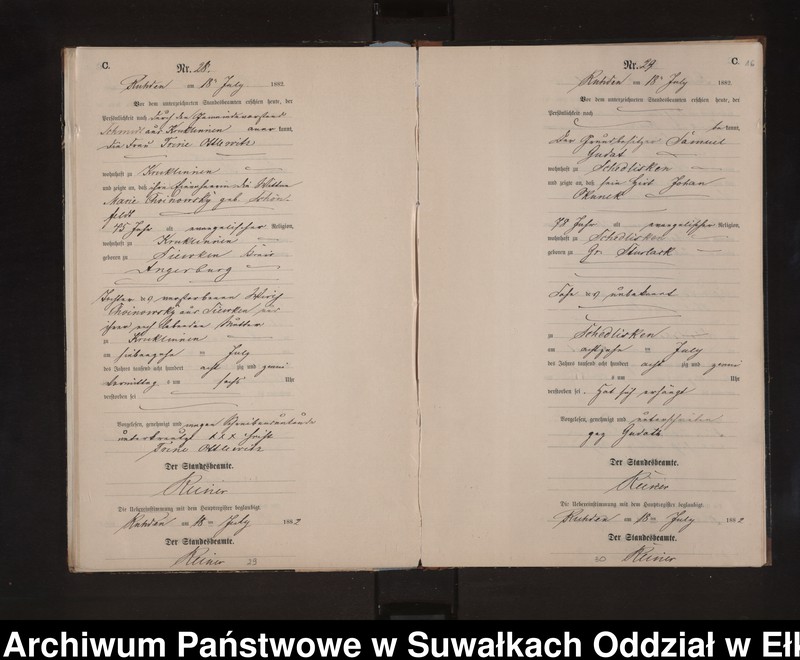 C.
Nr. 28.
Ruhden am 18ten July 1882.
Vor dem unterzeichneten Standesbeamten erschien heute, der
Persönlichkeit nach durch den Gemeindevorstand
Schmidt aus Kruklinnen kannt,
die Frau Trine Ottlewitz
wohnhaft zu Kruklinnen
und zeigte an, daß die Wittwe
Marie geb.
75 Jahr alt evangelischer Religion,
wohnhaft zu Kruklinnen
geboren zu Kreis
Angerburg
Tochter des verstorbenen Wirth
aus
ihrer noch lebenden Mutter
zu Kruklinnen
am siebenzehn ten July
des Jahres tausend acht hundert acht zig und zwei
Vormittag s um sechs Uhr
verstorben sei
Vorgelesen, genehmigt und wegen
unterkreuzt x x x
Trine Ottlewitz
Der Standesbeamte.
Reiner
Die Uebereinstimmung mit dem Hauptregister beglaubigt.
Ruhden am 18ten July 1882
Der Standesbeamte.
Reiner
29
C.
Nr. 29
Ruhden am 18ten July 1882.
Vor dem unterzeichneten Standesbeamten erschien heute, der
Persönlichkeit nach
bekannt,
der Grundbesitzer Samuel
Gudat
wohnhaft zu Schedlisken
und zeigte an, daß sein Johan
78 Jahr alt evangelischer Religion,
wohnhaft zu Schedlisken
geboren zu Gr. Sturlack
Sohn des unbekannt
zu Schedlisken
am achtzehn ten July
des Jahres tausend acht hundert acht zig und zwei
s um Uhr
verstorben sei. Hat sich erhängt
Vorgelesen, genehmigt und unterschrieben
gez Gudat
Der Standesbeamte.
Reiner
Die Uebereinstimmung mit dem Hauptregister beglaubigt.
Ruhden am 18ten July 1882
Der Standesbeamte.
30 Reiner
Archiwum Państwowe w Suwałkach Oddział w Ełk